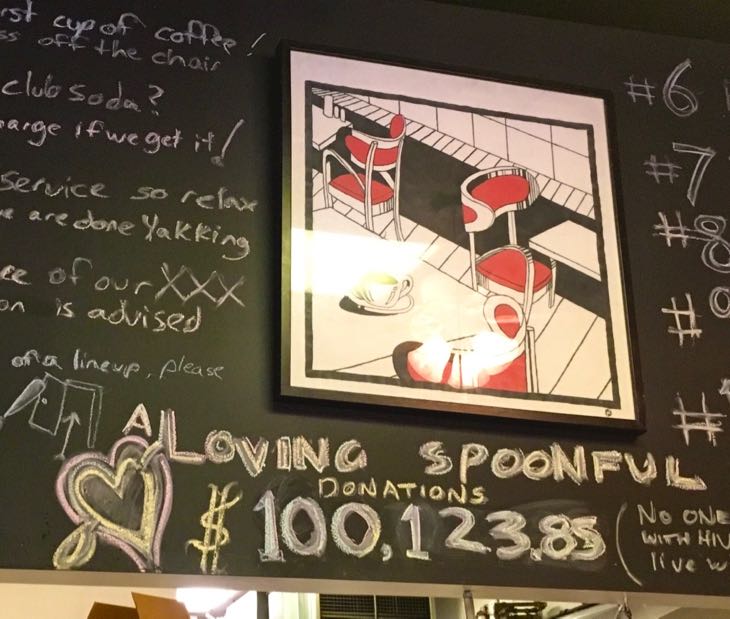 rst cup of coffee!
ss off the chair
club soda?
harge if we get it!
service so relax
we are done Yakking
ee of our XXX
on is advised
of a lineup, please
#6
#7
#8
#9
#
A LOVING SPOONFUL
DONATIONS
$ 100,123.85
(NO ONE
WITH HIV
live w